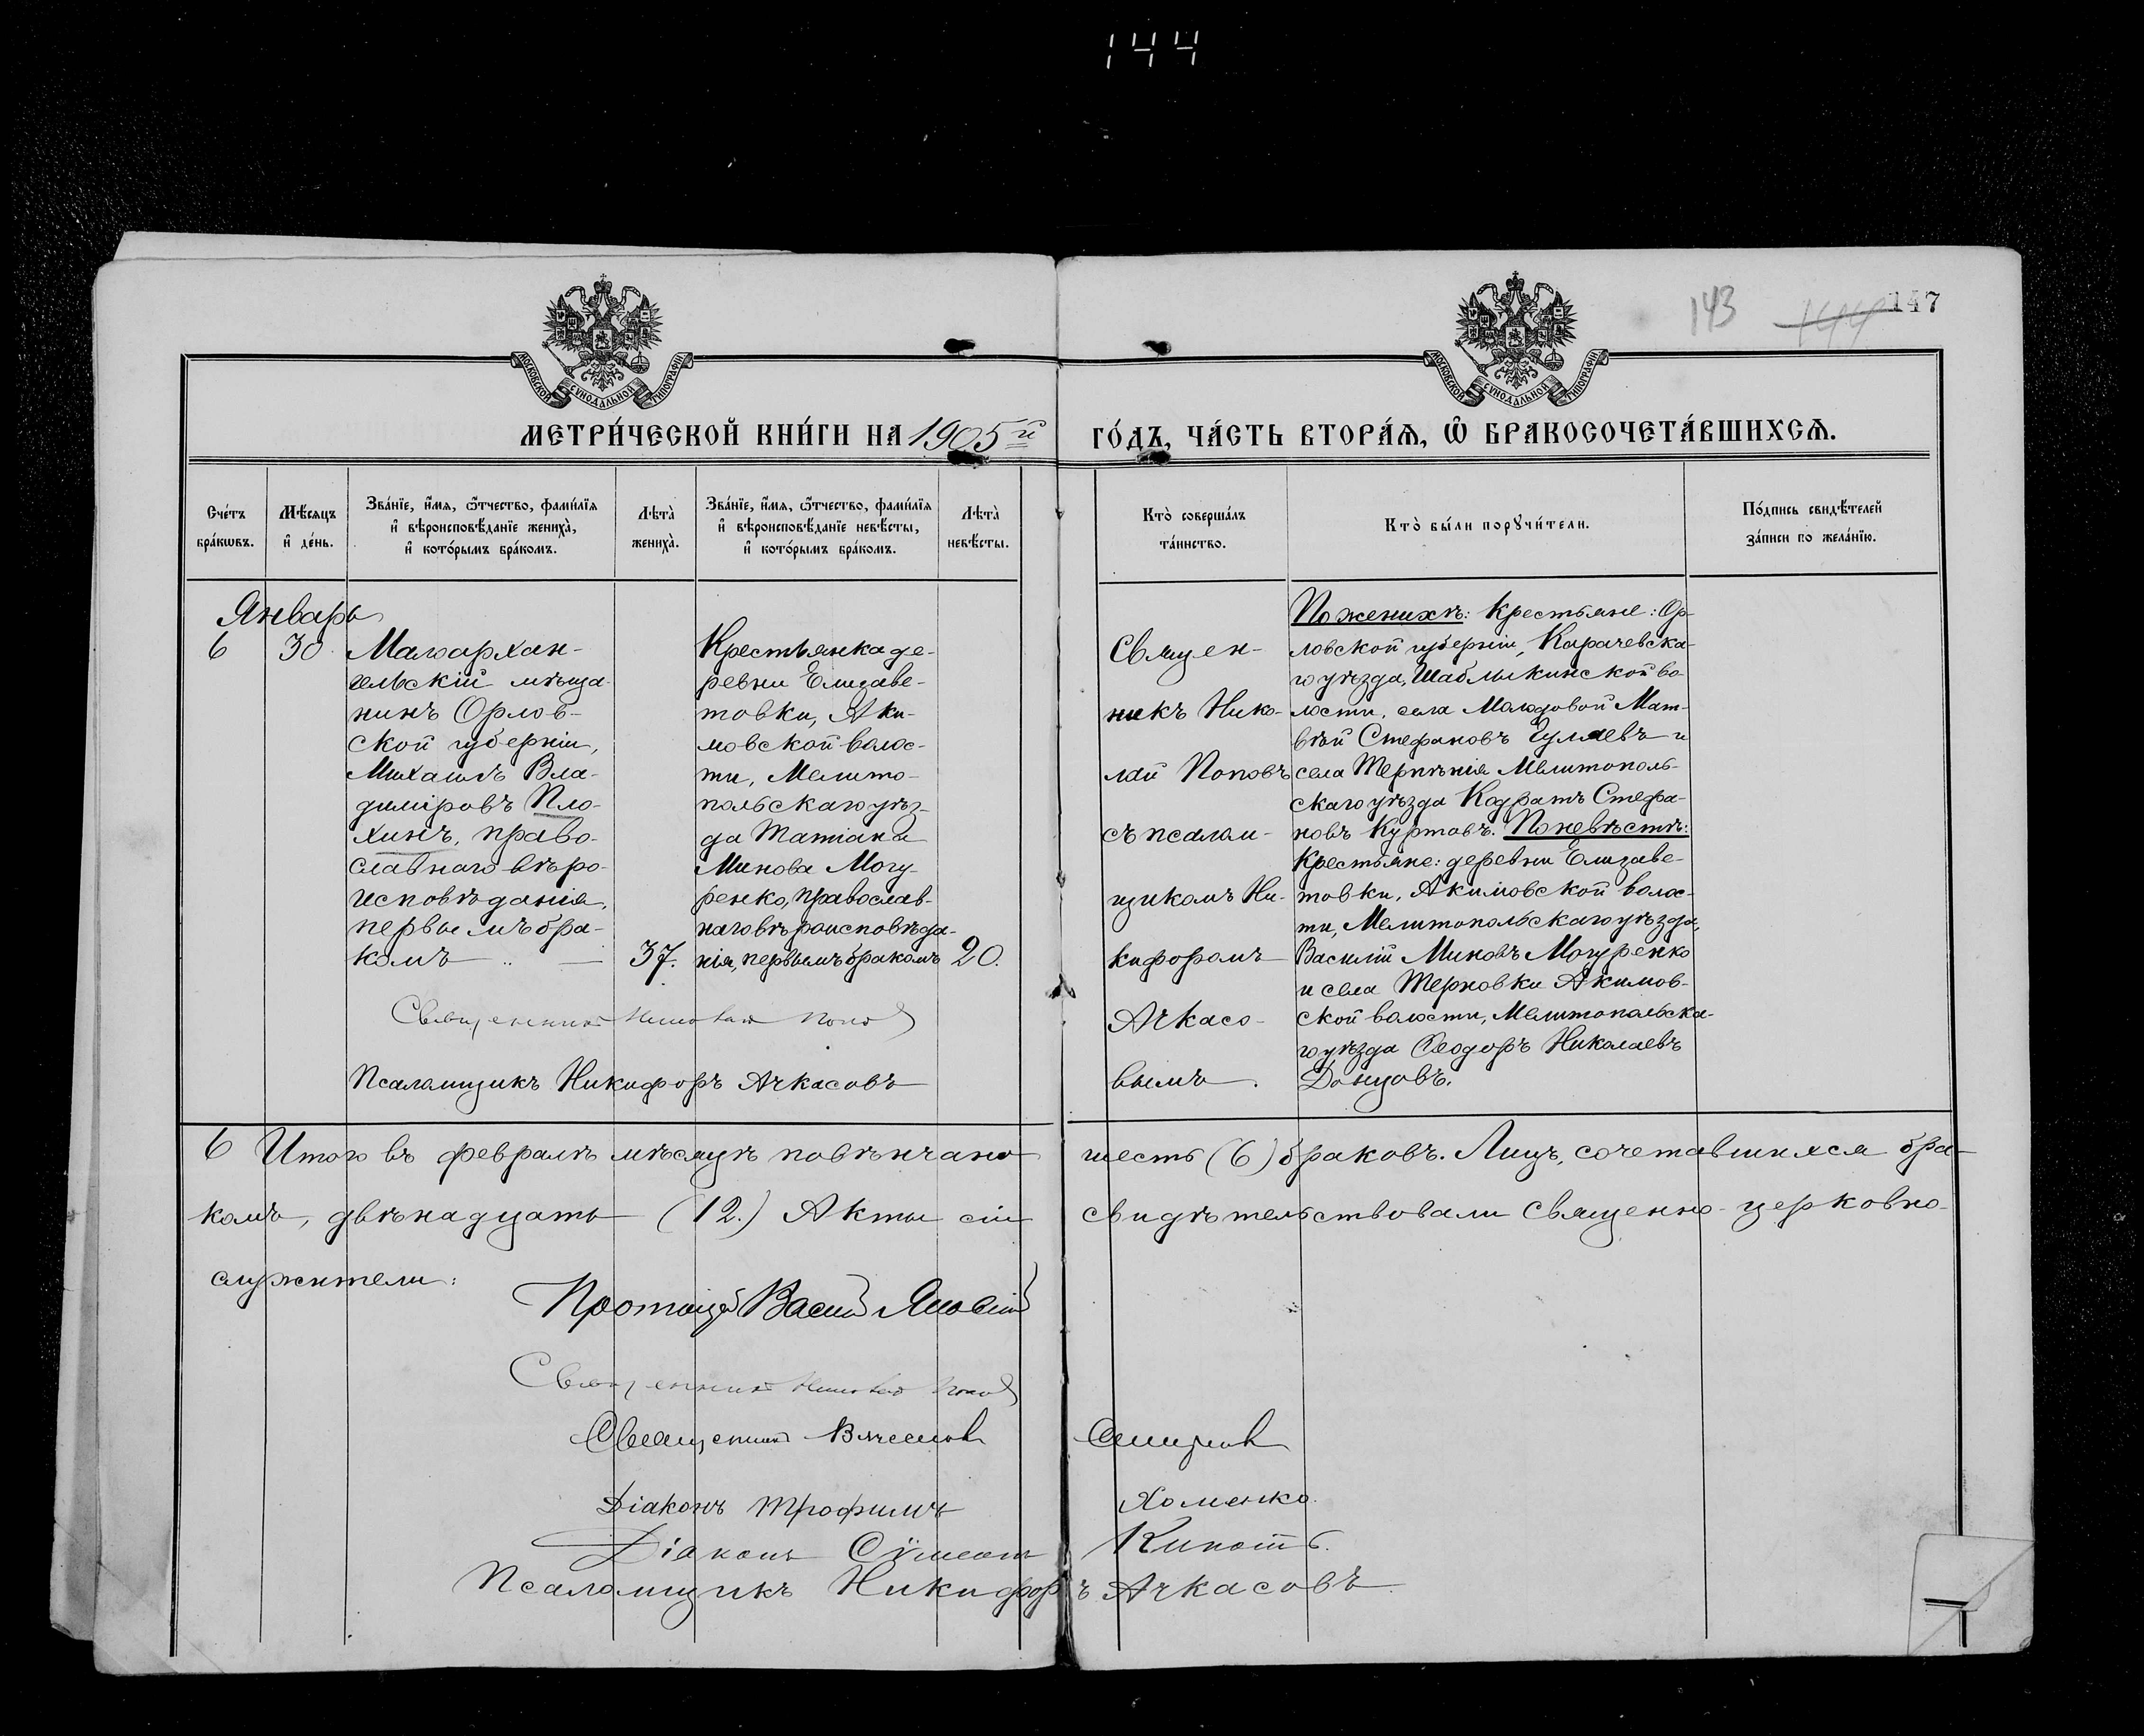 144
143
144
147
МОСКОВСКОЙ СУНОДАЛЬНОЙ ТИПОГРАФІИ
МОСКОВСКОЙ СУНОДАЛЬНОЙ ТИПОГРАФІИ
МЕТРИ́ЧЕСКОЙ КНИ́ГИ НА 1905й
ГО́ДЪ, ЧА́СТЬ ВТОРА́Ѧ, Ѽ БРАКОСОЧЕТА́ВШИХСѦ.
Сче́тъ бра́кѡвъ.
Мѣ́сяцъ и҆ де́нь.
Зва́нїе, и҆́мѧ, ѻ҆́тчество, фами́лїѧ
и҆ вѣроисповѣ́данїе жениха̀,
и҆ кото́рымъ бра́комъ.
Лѣта̀ жениха̀.
Зва́нїе, и҆́мѧ, ѻ҆́тчество, фами́лїѧ
и҆ вѣроисповѣ́данїе невѣ́сты,
и҆ кото́рымъ бра́комъ.
Лѣта̀ невѣ́сты.
Кто̀ соверша́лъ
та́инство.
Кто̀ бы́ли порꙋчи́тели.
По́дпись свидѣ́телей
за́писи по жела́нїю.
Январь
6
30
Малоархан-
гельскій мѣща-
нинъ Орлов-
ской губерніи,
Михаилъ Вла-
диміровъ Пло-
хинъ, право-
славнаго вѣро-
исповѣданія,
первымъ бра-
комъ
37.
Крестьянка де-
ревни Елизаве-
товки, Аки-
мовской волос-
ти, Мелито-
польскаго уѣз-
да Татіана
Минова Могу-
ренко, православ-
наго вѣроисповѣда-
нія, первымъ бракомъ
20.
Священникъ Николай Попов
Псаломщикъ Никифоръ Ачкасовъ
Священ-
никъ Нико-
лай Поповъ
съ псалом-
щикомъ Ни-
кифоромъ
Ачкасо-
вымъ.
По женихѣ: Крестьяне: Ор-
ловской губерніи, Карачевска-
го уѣзда, Шаблыкинской во-
лости, села Молодовой Мат-
вѣй Стефановъ Гуляевъ и
села Терпѣнія Мелитополь-
скаго уѣзда Кодратъ Стефа-
новъ Куртовъ. По невѣстѣ:
Крестьяне: деревни Елизаве-
товки, Акимовской волос-
ти, Мелитопольскаго уѣзда,
Василій Миновъ Могуренко
и села Терновки Акимов-
ской волости, Мелитопольска-
го уѣзда Ѳеодоръ Николаевъ
Донцовъ.
6 Итого въ февралѣ мѣсяцѣ повѣнчано шесть (6) браковъ. Лицъ, сочетавшихся бра-
комъ, двѣнадцать (12.) Акты сіи свидѣтельствовали священно-церковно-
служители:
Протоіерей Василій
Священникъ Николай Попов
Священникъ
Діаконъ Трофимъ Хоменко.
Діаконъ Сүмеонъ
Псаломщикъ Никифоръ Ачкасовъ